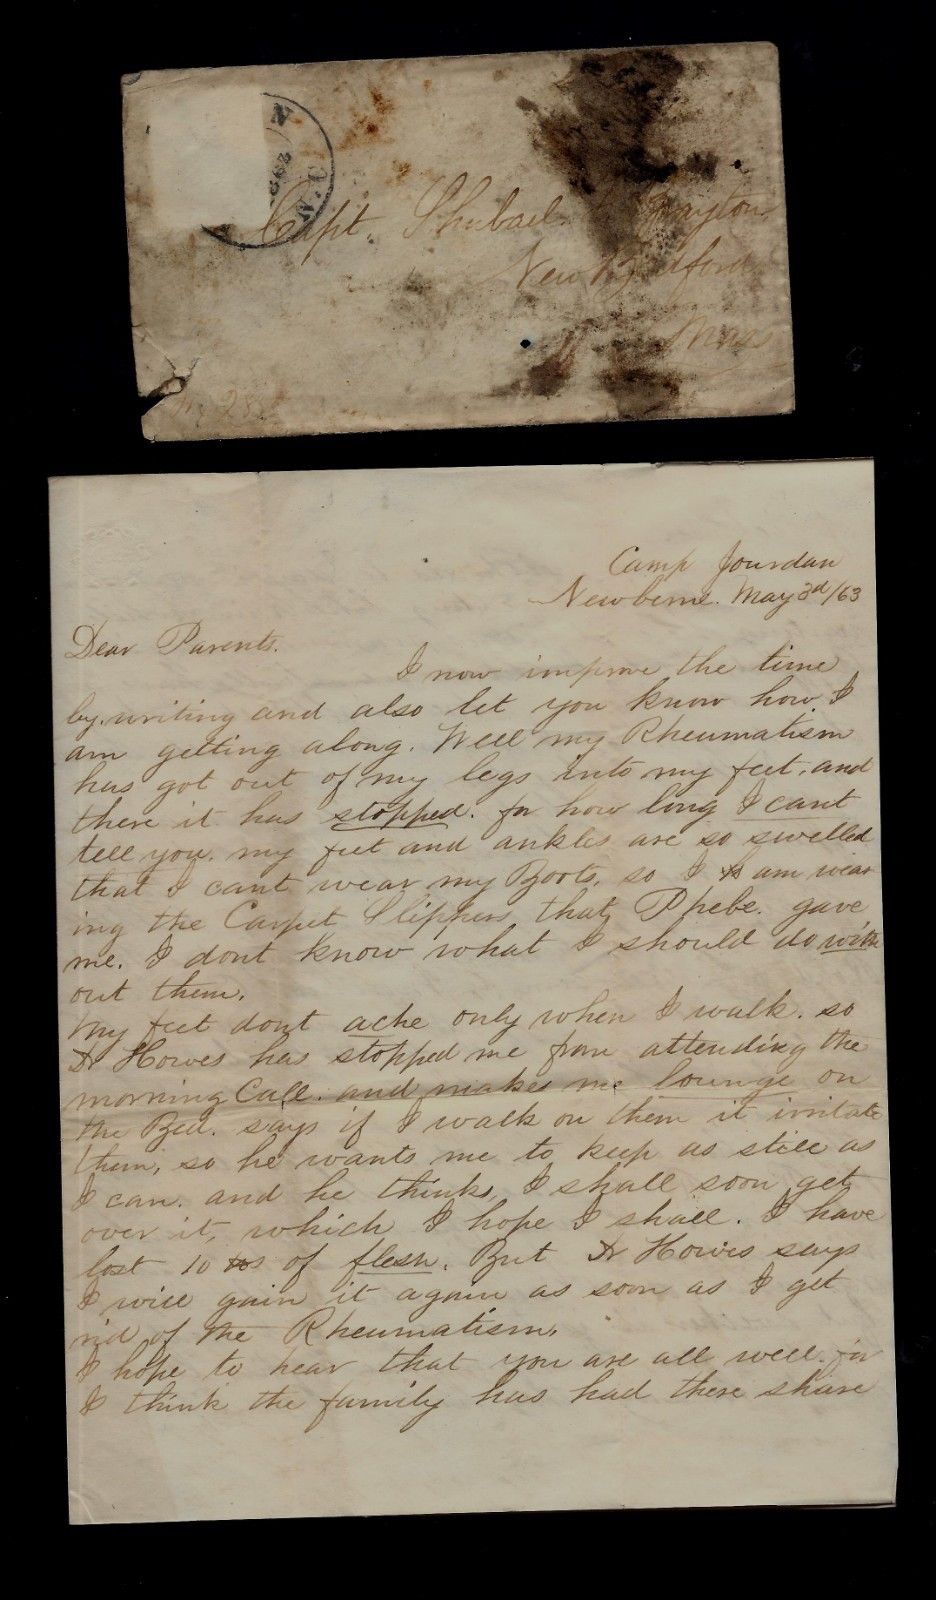 N
N.C.
Capt. Shubael
New Bedford
Mass
Camp Jourdan
Newberne. May 3d/63
Dear Parents.
I now improve the time
by writing and also let you know how I
am getting along. Well my Rheumatism
has got out of my legs into my feet, and
there it has stopped. for how long I cant
tell you. my feet and ankles are so swelled
that I cant wear my Boots, so I am wear
ing the Carpet Slippers that Phebe. gave
me. I dont know what I should do with
out them.
My feet dont ache only when I walk. so
Dr Howes has stopped me from attending the
morning Call. and makes me lounge on
the Bed. says if I walk on them it irritate
them, so he wants me to keep as still as
I can. and he thinks, I shall soon get
over it, which I hope I shall. I have
lost 10 lbs of flesh. But Dr Howes says
I will gain it again as soon as I get
rid of the Rheumatism.
I hope to hear that you are all well. for
I think the family has had there share